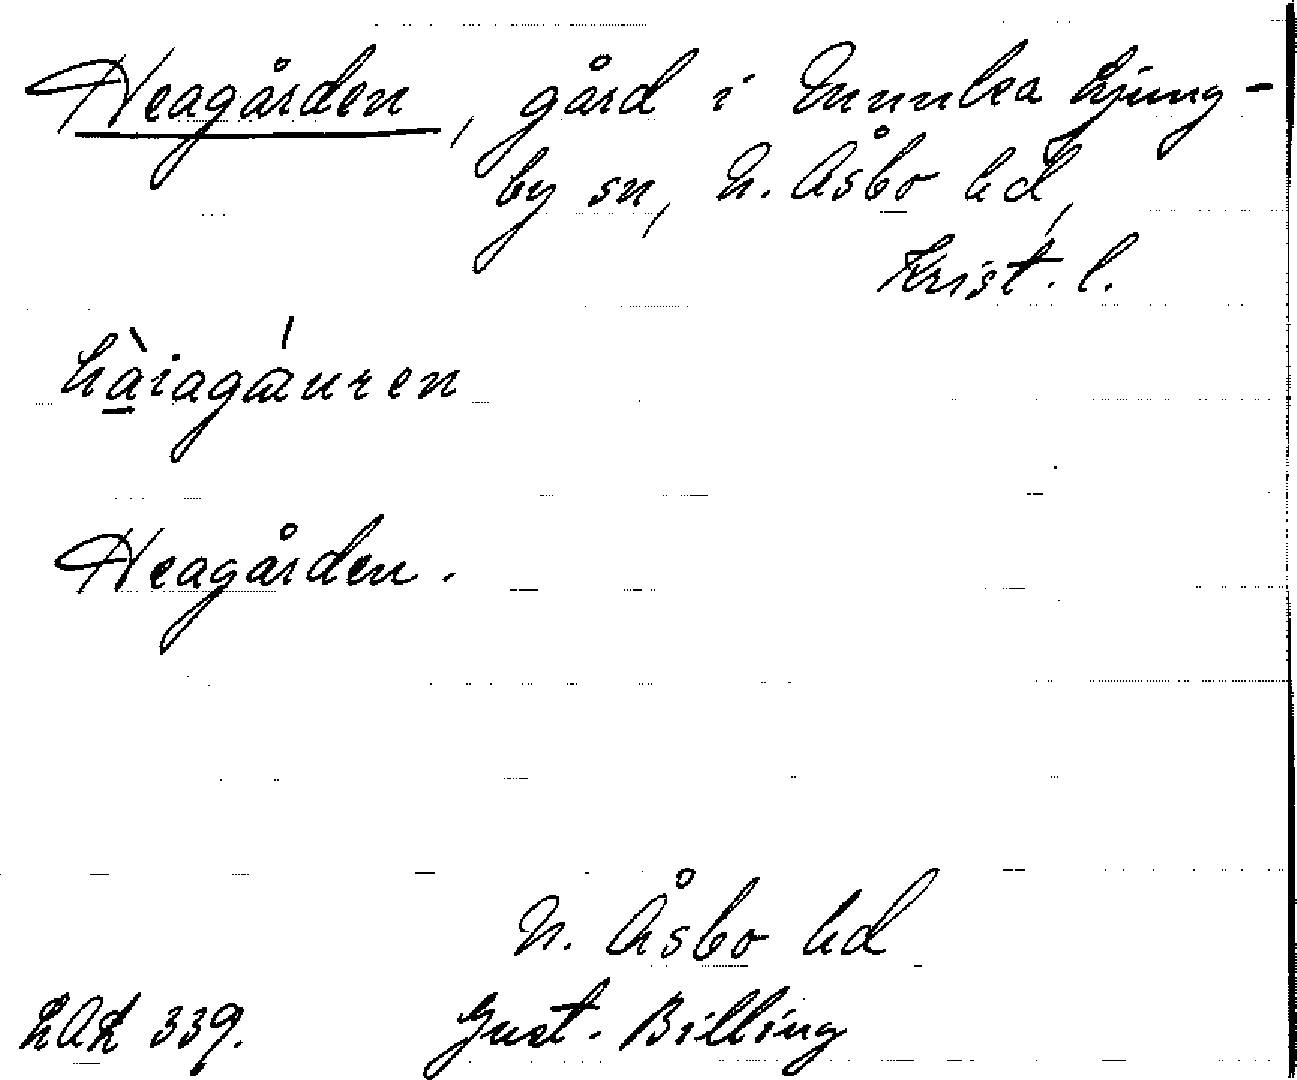 Heagården, gård i Munnlea Ljung-
by sn, N. Åsbo hd,
Krist. l.
hàiagáuren
Heagården.
N. Åsbo hd
LAL 339. Gust. Billing